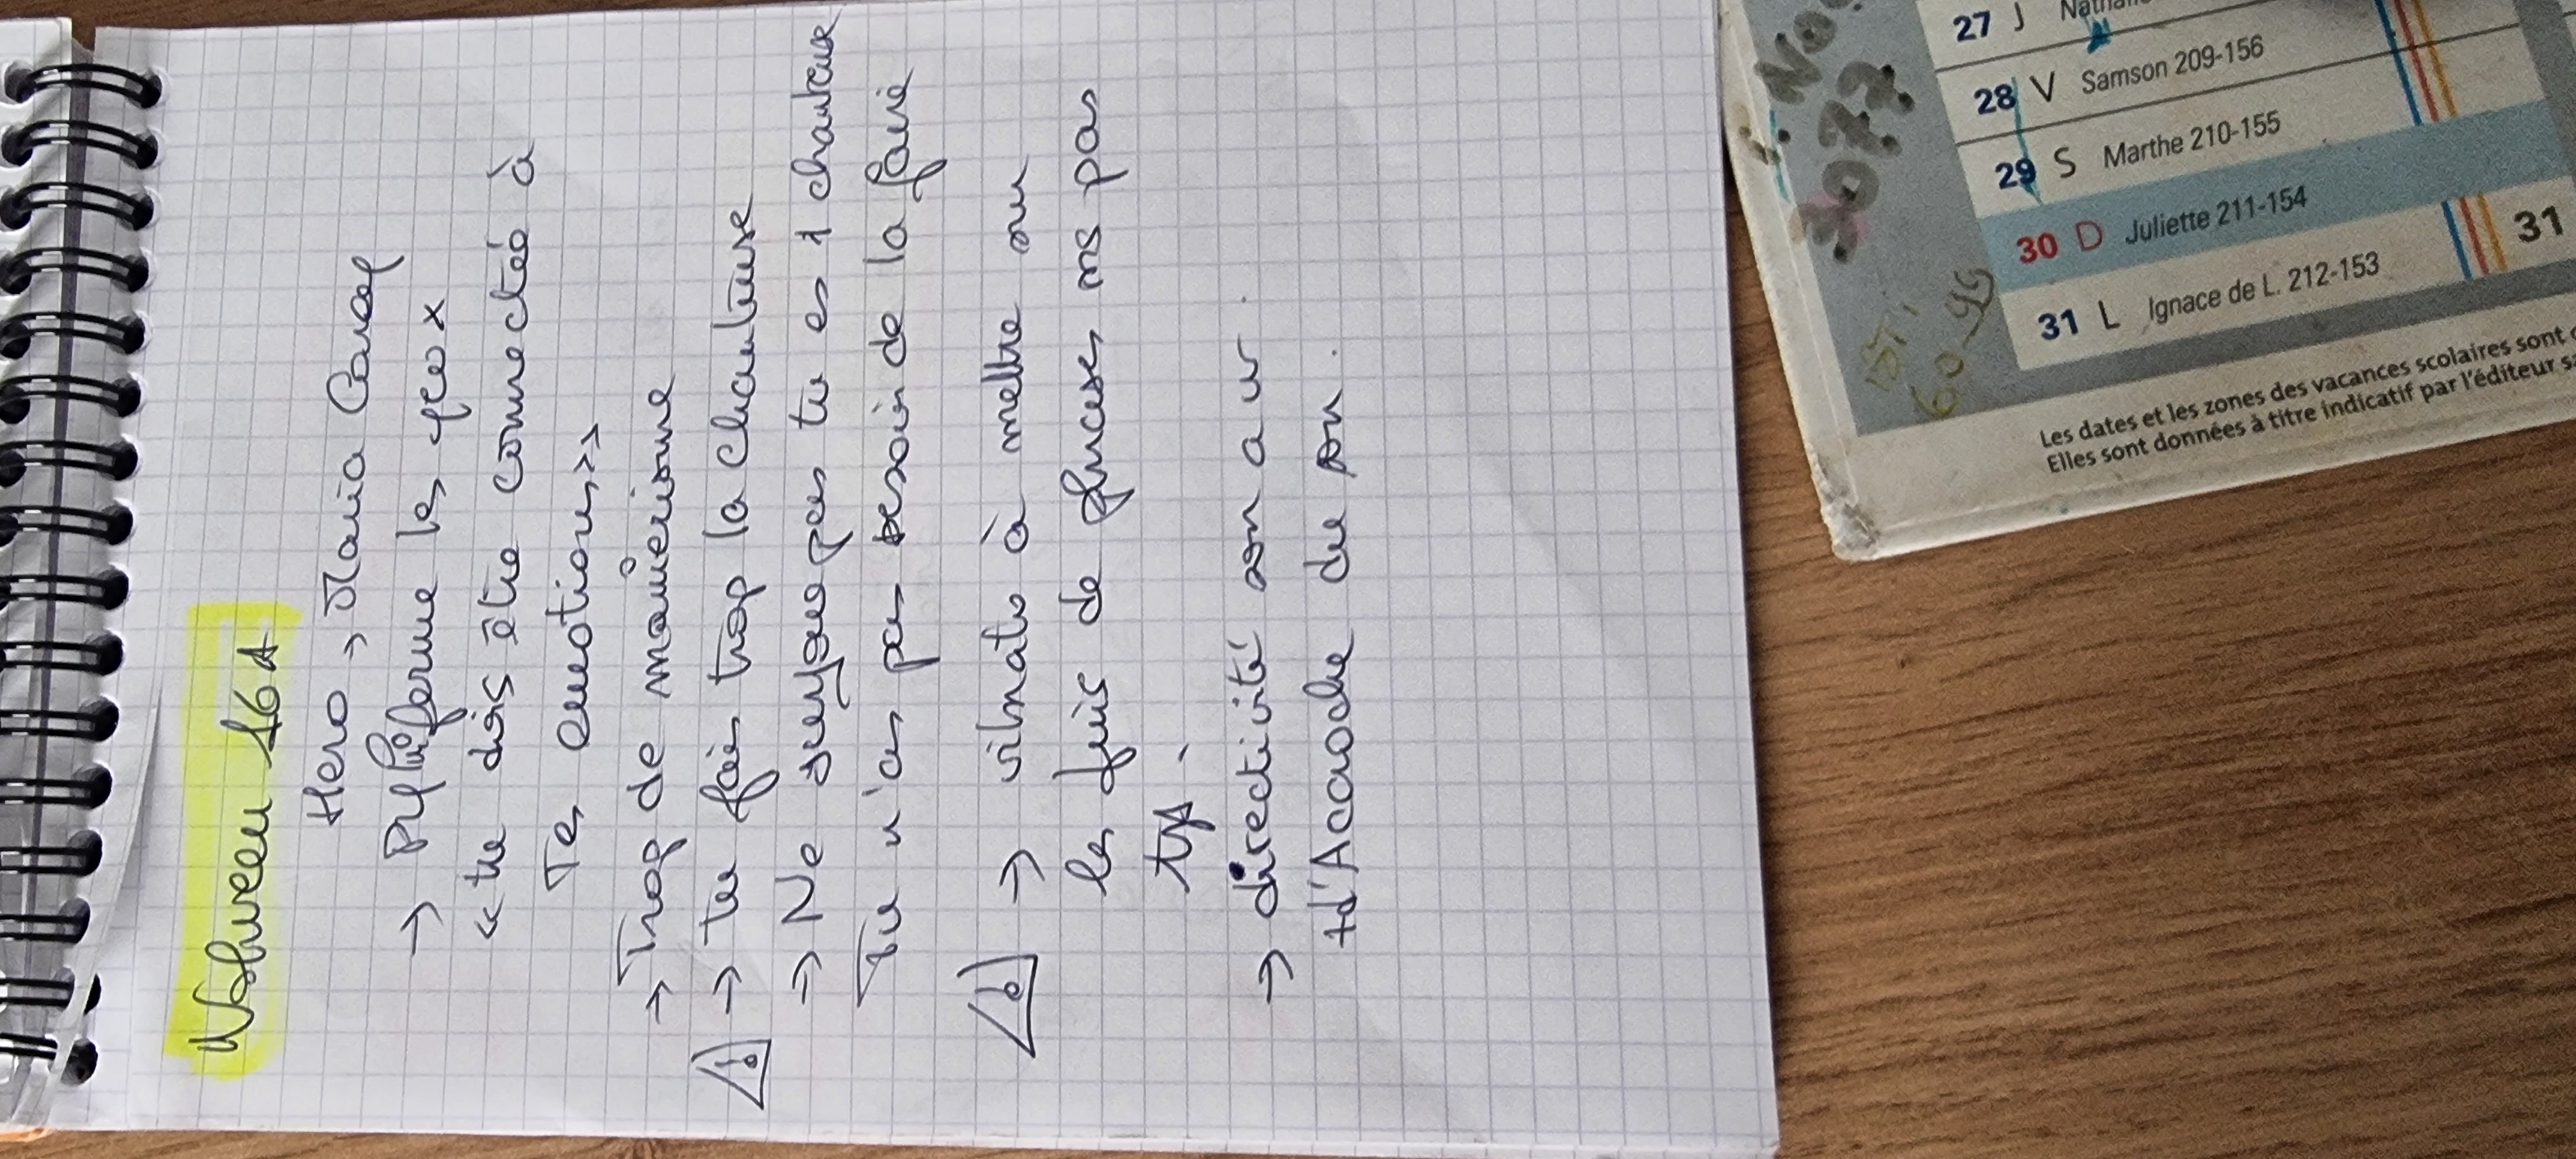 Hero → Maria Carey
→ ferme les yeux
« tu dois être connectée à
Tes emotions »
→ Trop de manièrisme
→ tu fais trop la chanteuse
→ Ne surjoue pas tu es 1 chanteuse
Tu n'as pas besoin de la faire
→ vibrato à mettre sur
les fins de phrases ms pas
tjs.
→ directivité son a w.
+ d'Accroche du son.
27 J
28 V Samson 209-156
29 S Marthe 210-155
30 D Juliette 211-154
31 L Ignace de L. 212-153
31
60-95
Les dates et les zones des vacances scolaires sont
Elles sont données à titre indicatif par l'éditeur